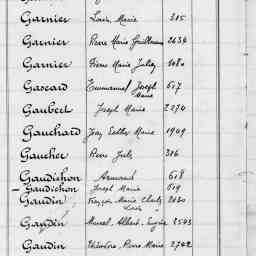 Garnier Louis Marie 315
Garnier Pierre Marie Guillaume 2634
Garnier Pierre Marie Julien 1080
Gascard Emmanuel Joseph Marie 617
Gaubert Joseph Marie 2274
Gauchard Jean Esther Marie 1909
Gaucher Pierre Jules 316
Gaudichon Armand 618
Gaudichon Joseph Marie 619
Gaudin François Marie Charles Louis 2030
Gaudin Marcel Albert Eugène 2543
Gaudin Théodore Pierre Marie 2742